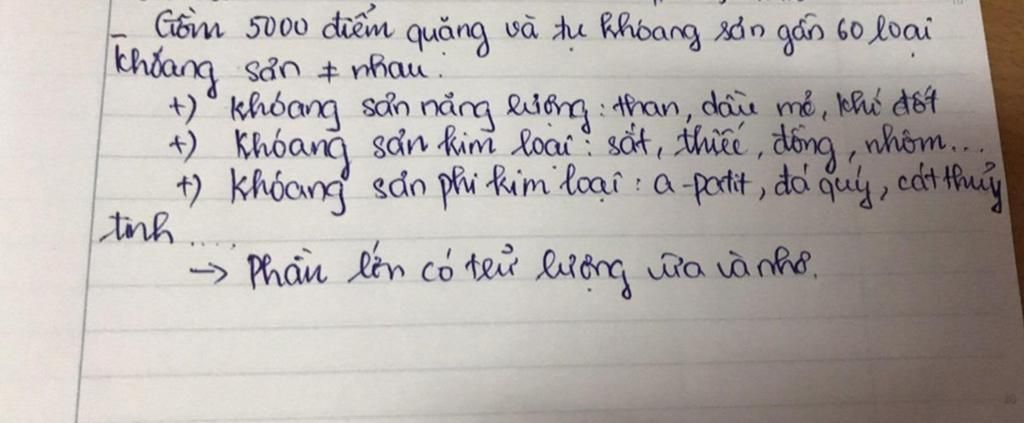 - Gồm 5000 điểm quặng và tụ khóang sản gần 60 loại
khóang sản ≠ nhau.
+) khóang sản năng lượng: than, dầu mỏ, khí đốt
+) khóang sản kim loại: sắt, thiếc, đồng, nhôm...
+) khóang sản phi kim loại: a-patit, đá quý, cát thủy
tinh....
→ Phần lớn có trữ lượng vừa và nhỏ.